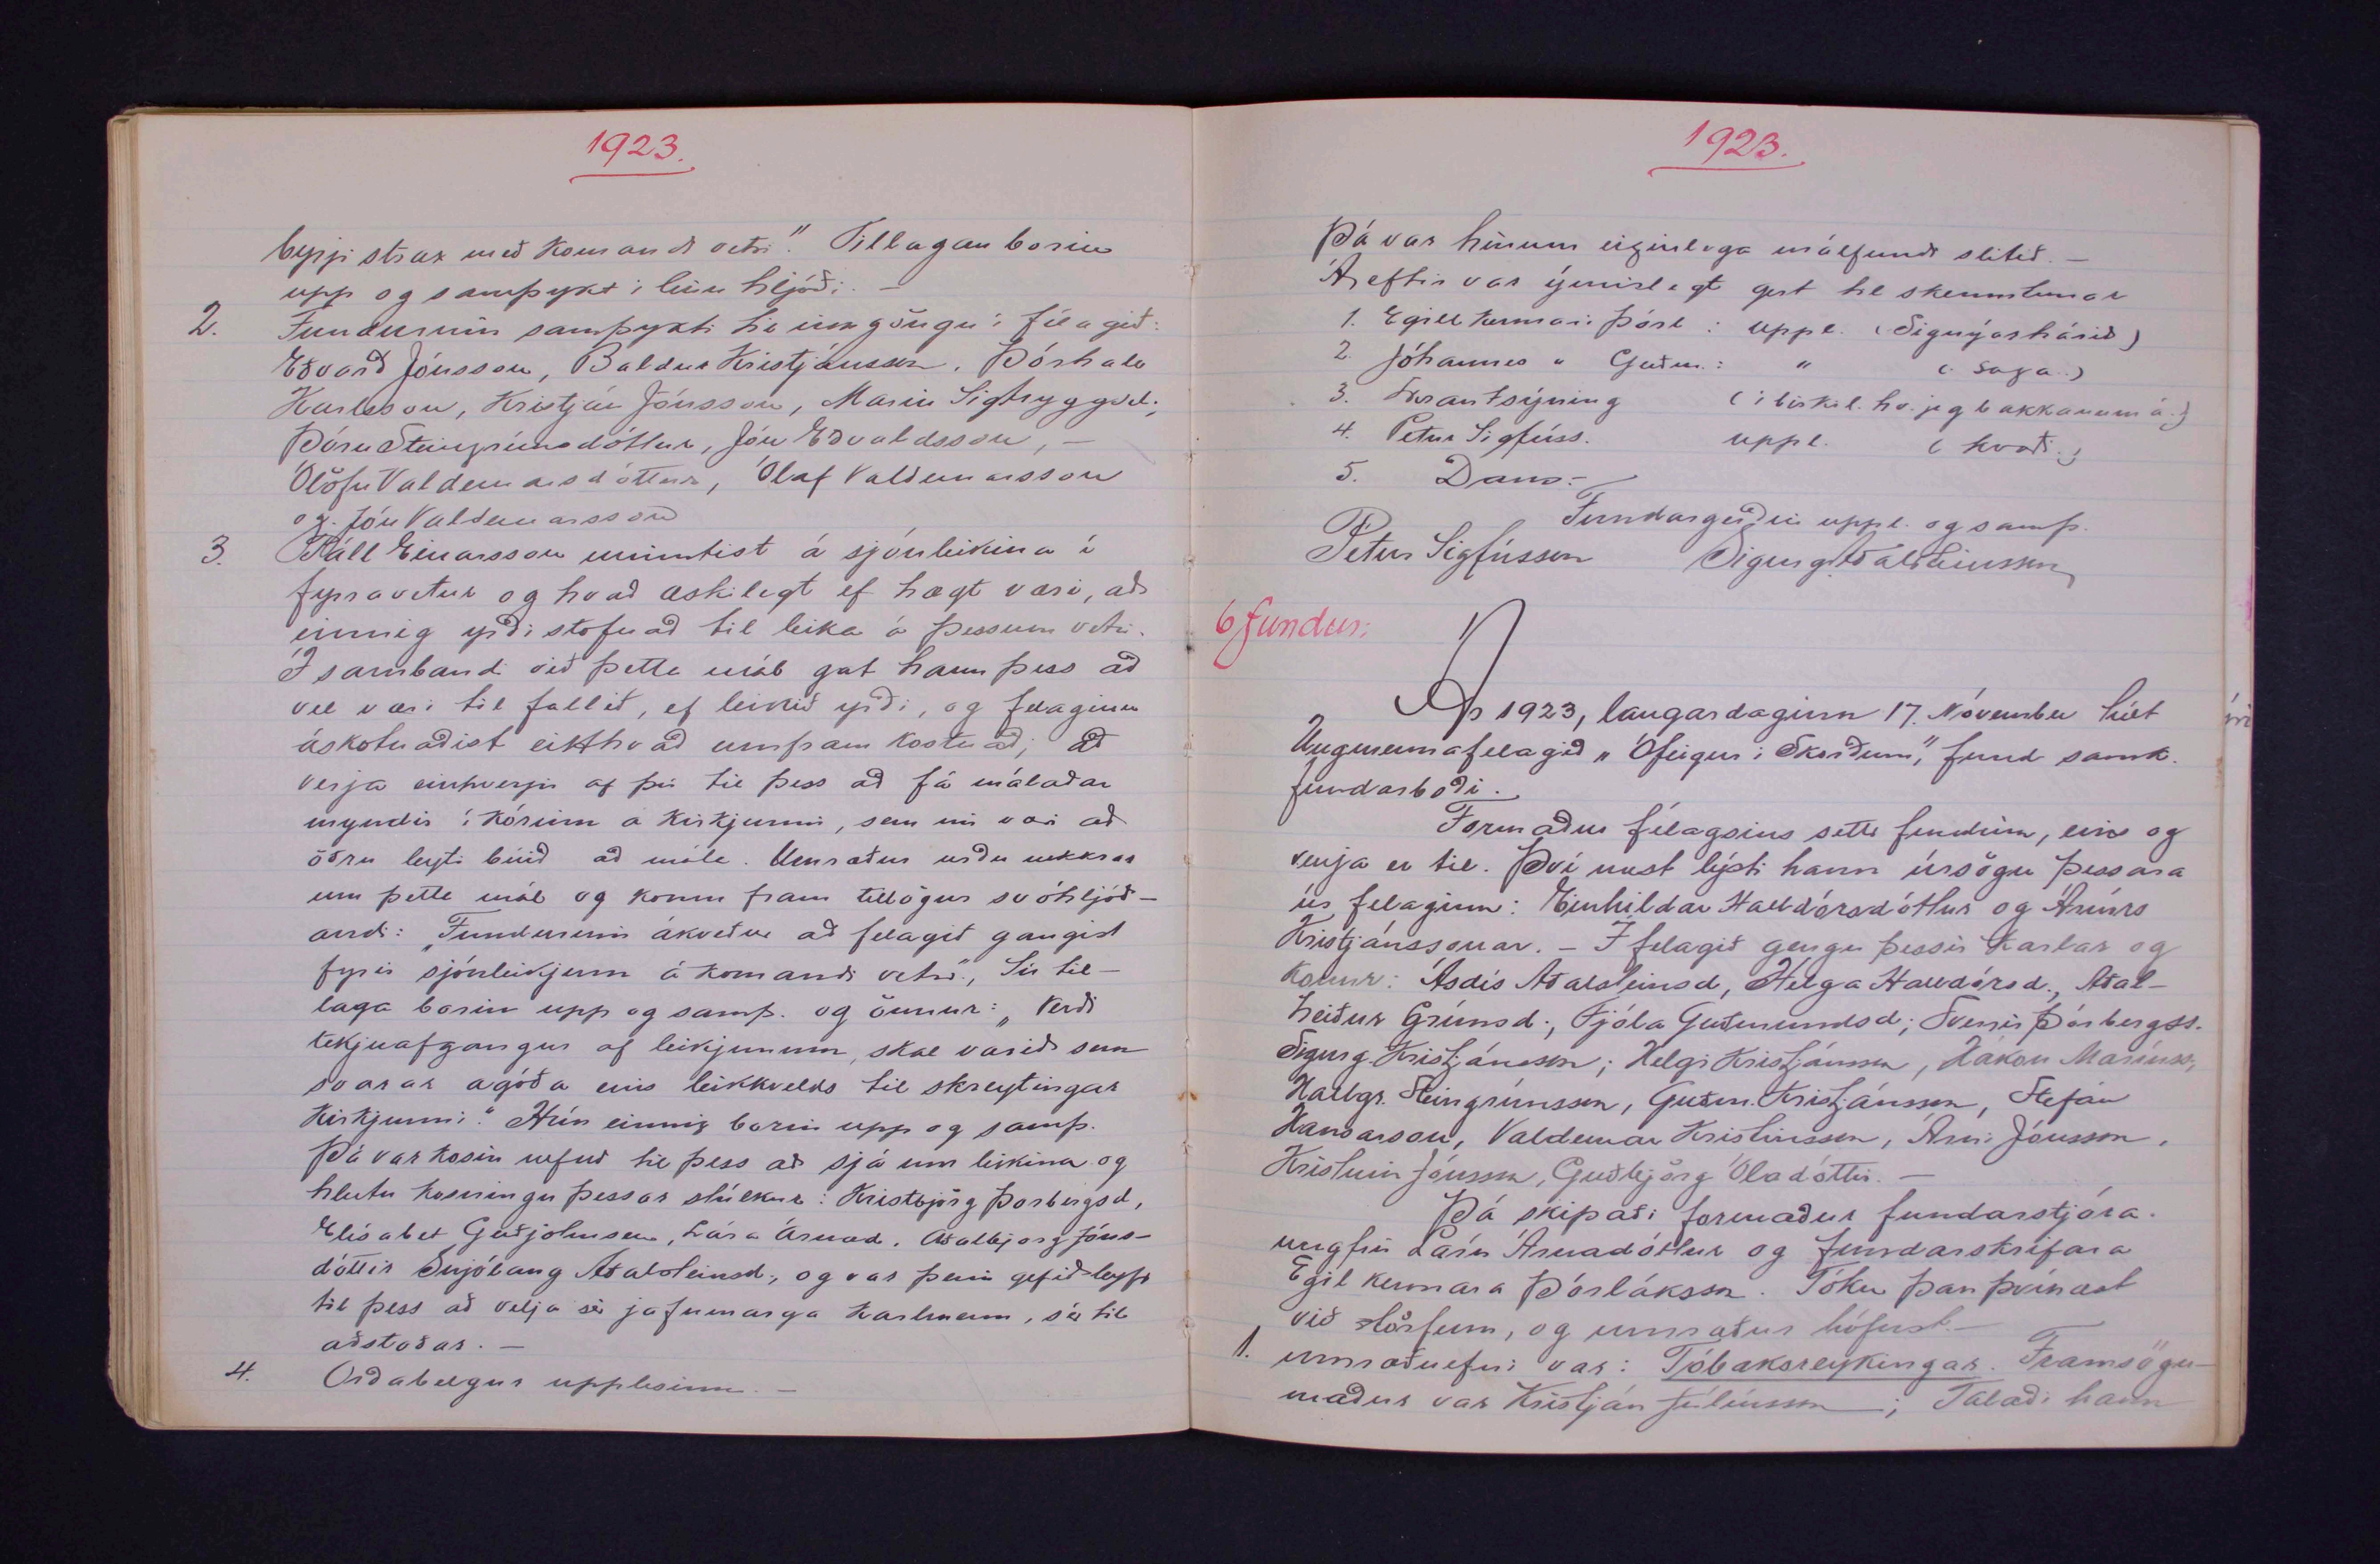 1923.
byrji strax með komandi vetri." Tillagan borin
upp og samþykt í einu hljóði. —
2. Fundurinn samþykti til inngöngu í félagið:
Eðvarð Jónsson, Baldur Kristjánsson, Þórhall
Karlsson, Kristján Jónsson, Marin Sigtryggsd.,
Þóru Steingrímsdóttur, Jón Eðvaldsson, —
Ólöfu Valdemarsdóttur, Ólaf Valdemarsson
og Jón Valdemarsson
3. Páll Einarsson mintist á sjónleikina í
fyrravetur og hvað æskilegt ef hægt væri, að
einnig yrði stofnað til leika á þessum vetri.
Í sambandi við þetta mál gat hann þess að
vel væri til fallið, ef leikið yrði, og félaginu
áskotnaðist eitthvað umfram kostnað, að
verja einhverju af því til þess að fá málaðar
myndir í kórinn á kirkjunni, sem nú væri að
öðru leyti búið að mála. Umræður urðu nokkrar
um þetta mál og komu fram tillögur svóhljóð-
andi: „Fundurinn ákveður að félagið gangist
fyrir sjónleikjum á komandi vetri", Sú til-
laga borin upp og samþ. og önnur: „Verði
tekjuafgangur af leikjunum, skal varið sem
svarar ágóða eins leikkvelds til skreytingar
kirkjunni." Hún einnig borin upp og samþ.
Þá var kosin nefnd til þess að sjá um leikina og
hlutu kosningu þessar stúlkur: Kristbjörg Þorbergsd,
Elísabet Guðjohnsen, Lára Árnad. Aðalbjörg Jóns-
dóttir Snjólaug Aðalsteinsd., og var þeim gefið leyfi
til þess að velja sér jafnmarga karlmenn, sér til
aðstoðar. —
4. Orðabelgur upplesinn. —
1923.
Þá var hinum eiginlega málfundi slitið. —
Á eftir var ýmislegt gert til skemtunar
1. Egill kennari Þórl: uppl. (Signýjarhárið)
2. Jóhannes " Guðm.: " (saga)
3. Skrautsýning (í birkil. hv. jeg bakkanum á.)
4. Petur Sigfúss. uppl. (kvæði.)
5. Dans. —
Fundargerðin uppl. og samþ.
Petur Sigfússon Sigurg. Aðalsteinsson
6 fundur:
Ár 1923, laugardaginn 17. Nóvember hélt
Ungmennafelagið „Ófeigur í Skörðum", fund samk.
fundarboði.
Formaður félagsins setti fundinn, eins og
venja er til. Því næst lýsti hann úrsögn þessara
úr félaginu: Einhildar Halldórsdóttur og Árnúrs
Kristjánssonar. — Í félagið gengu þessir karlar og
konur: Ásdís Aðalsteinsd, Helga Halldórsd., Aðal-
heiður Grímsd., Fjóla Guðmundsd; Sverrir Þórbergss.
Sigurg. Kristjánsson; Helgi Kristjánsson, Hákon Maríuss,
Hallgr. Steingrímsson, Guðm. Kristjánsson, Stefán
Hansarson, Valdemar Kristinsson, Árni Jónsson,
Kristinn Jónsson, Guðbjörg Óladóttir. —
Þá skipaði formaður fundarstjóra.
ungfrú Láru Árnadóttur og fundarskrifara
Egil kennara Þórláksson. Tóku þau þvínæst
við störfum, og umræður hófust. —
1. umræðuefni var: Tóbaksreykingar. Framsögu-
maður var Kristján Júlíusson; Talaði hann